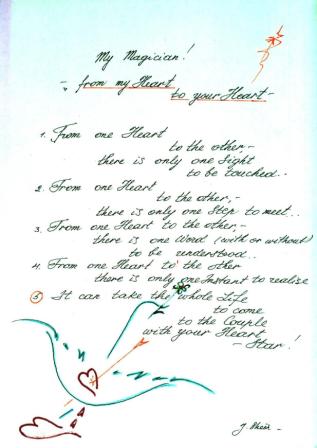 My Magician!
- from my Heart
to your Heart -
1. From one Heart
to the other, -
there is only one Sight
to be touched..
2. From one Heart
to the other, -
there is only one Step to meet...
3. From one Heart to the other, -
there is one Word (with or without)
to be understood..
4. From one Heart to the other
there is only one Instant to realise
5 It can take the whole Life
to come
to the Couple
with your Heart
- Star!
J.